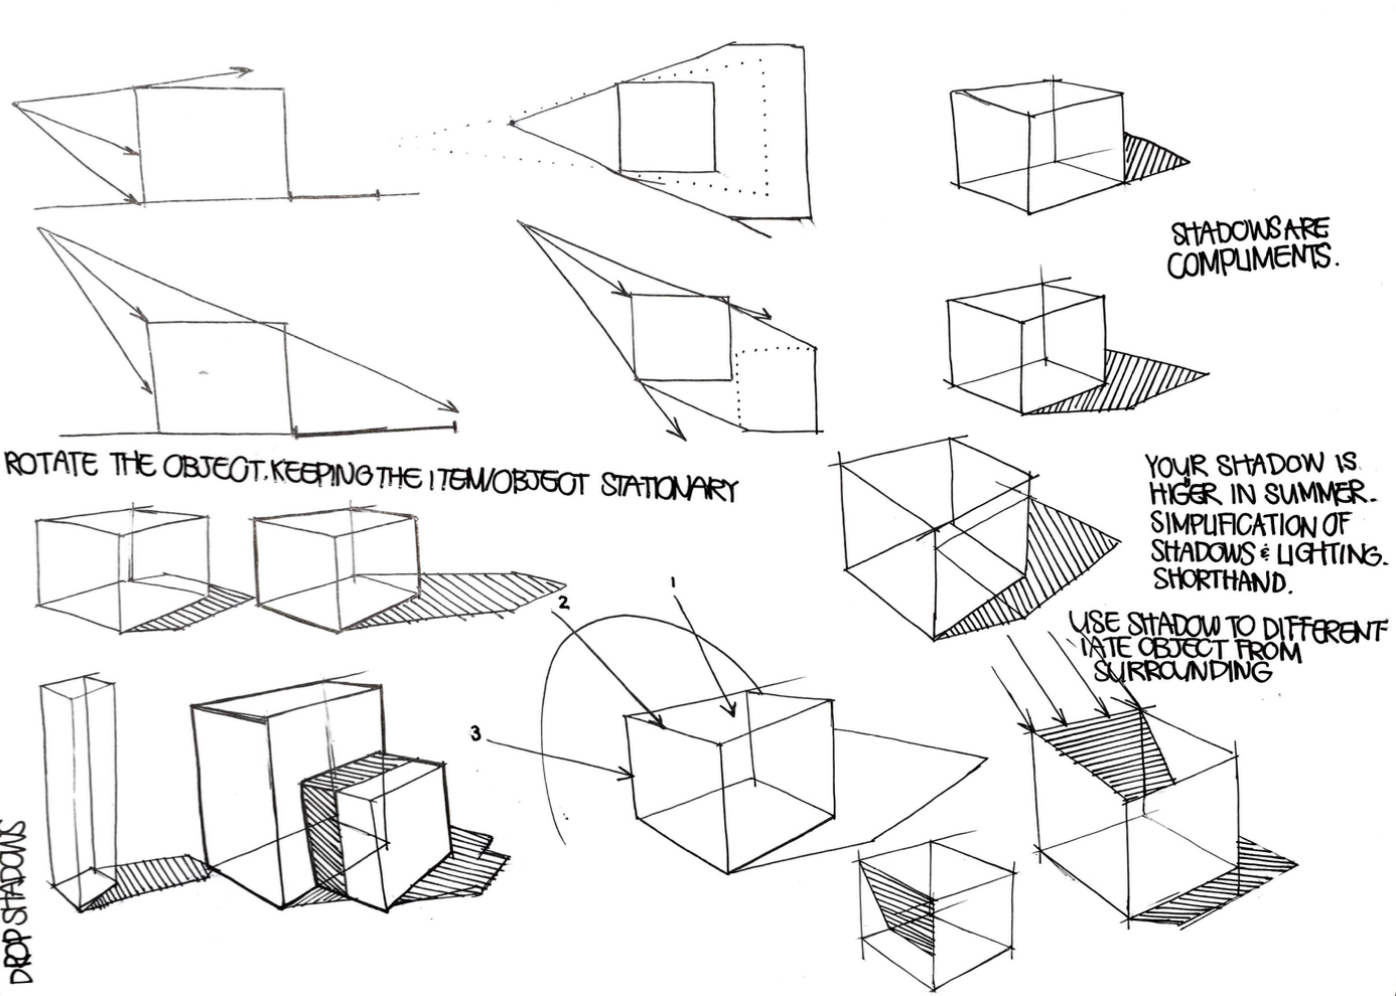 SHADOWS ARE
COMPLIMENTS.
ROTATE THE OBJECT. KEEPING THE ITEM/OBJECT STATIONARY
YOUR SHADOW IS
HIGER IN SUMMER.
SIMPLIFICATION OF
SHADOWS & LIGHTING.
SHORTHAND.
USE SHADOW TO DIFFERENT
IATE OBJECT FROM
SURROUNDING
1
2
3
DROP SHADOWS